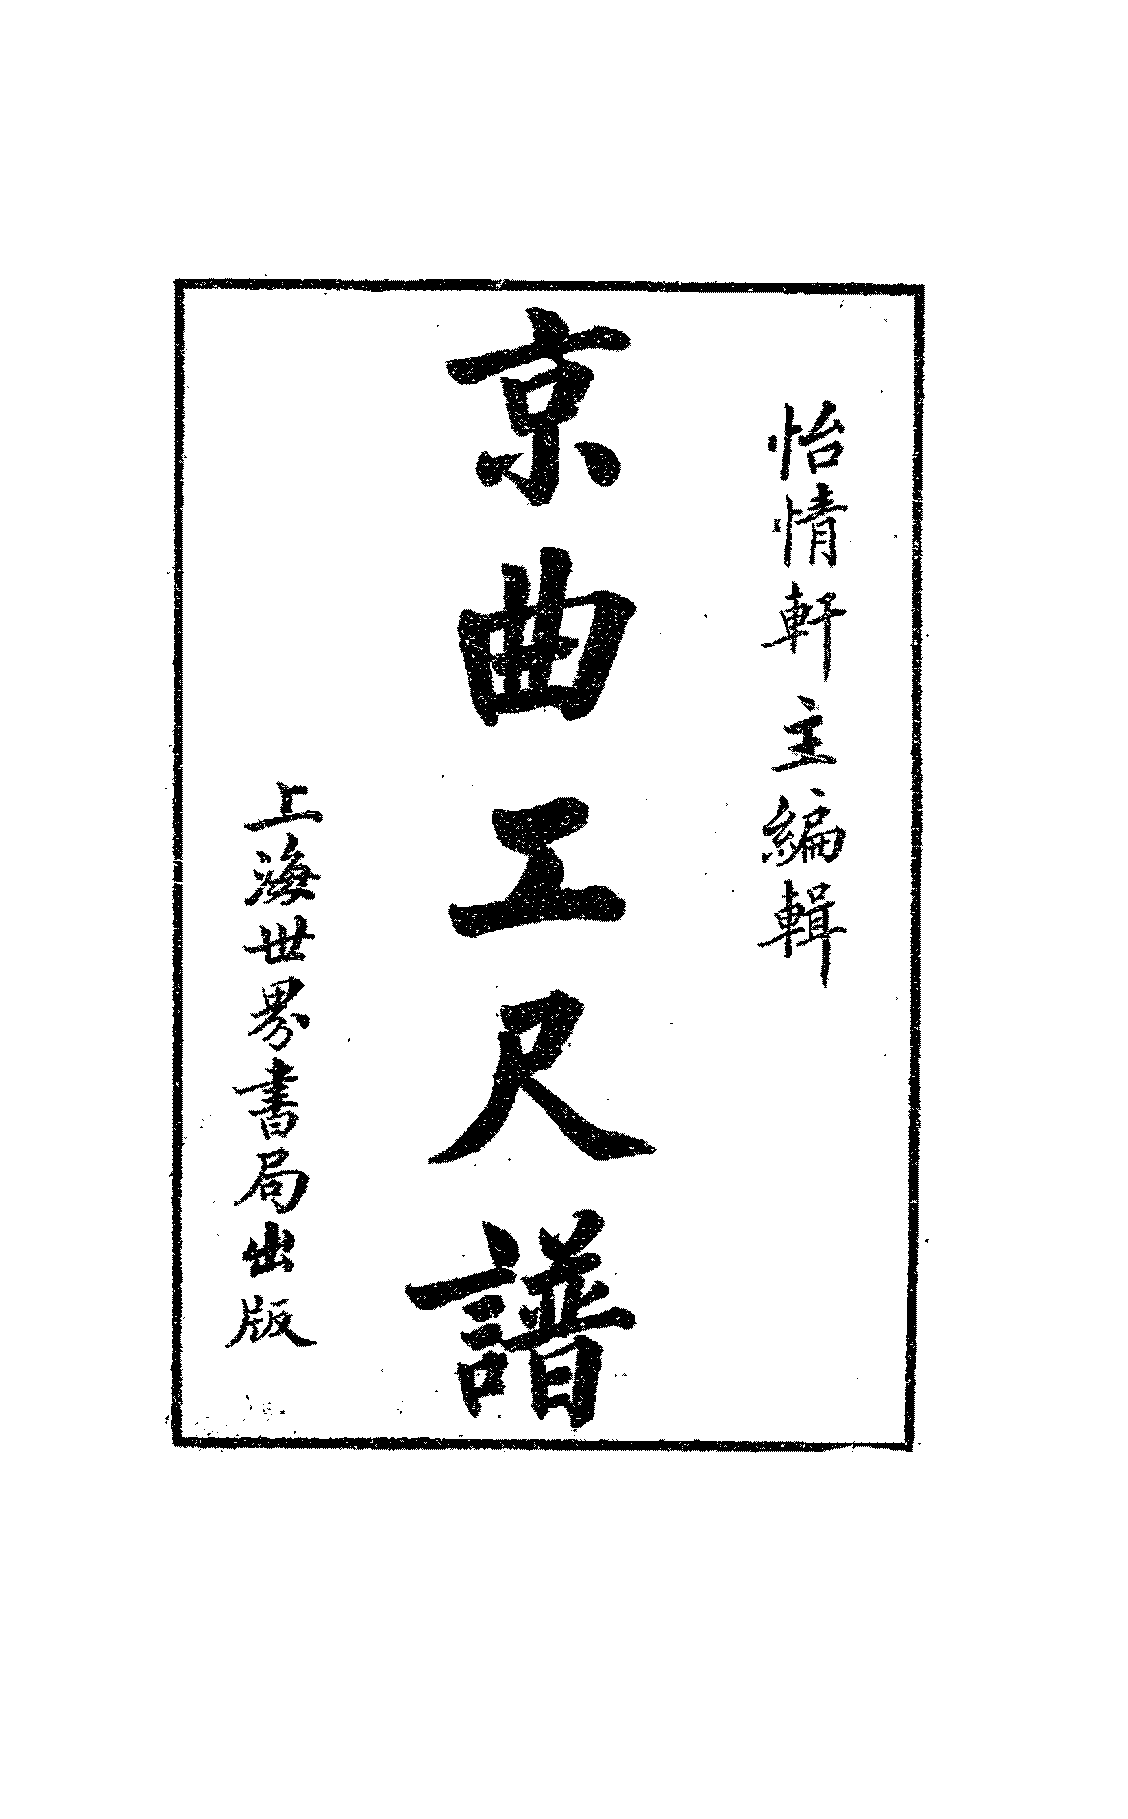 怡情軒主編輯
京曲工尺譜
上海世界書局出版